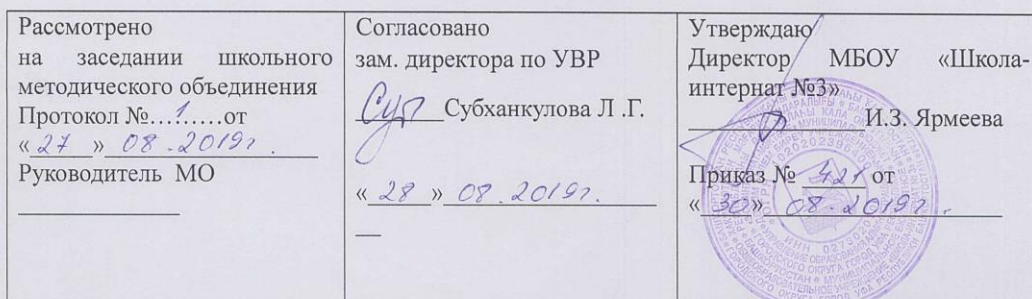 Рассмотрено
на заседании школьного
методического объединения
Протокол №…1……от
«_27_»_08.2019г.
Руководитель МО
Согласовано
зам. директора по УВР
Субханкулова Л .Г.
«_28_»_08.2019г.
Утверждаю
Директор МБОУ «Школа-
интернат №3»
И.З. Ярмеева
Приказ № 421 от
«_30»_08.2019г.